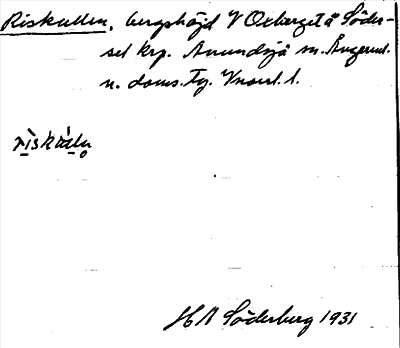 Riskullen, bergshöjd V Oxberget å Söder-
sel krp. Anundsjö sn. Ångerml.
n. doms. Tg. Vnorrl. l.
rìskúḷḷa
H A Söderberg 1931